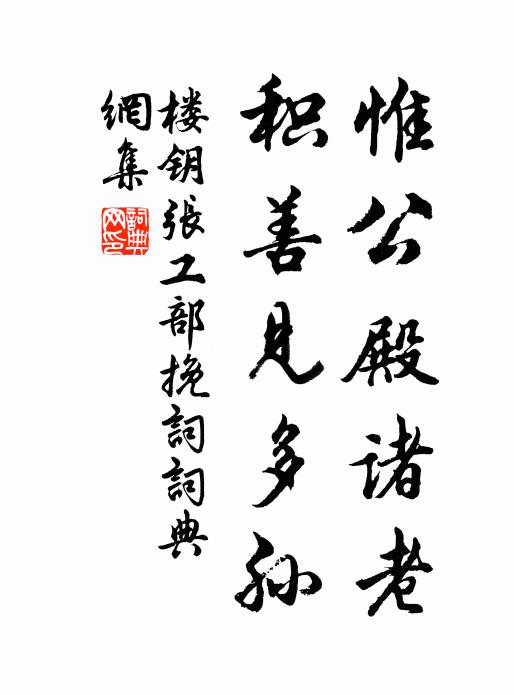 惟公殿诸老
积善见多孙
楼钥張工部挽詞詞典
網集
詞典
网印